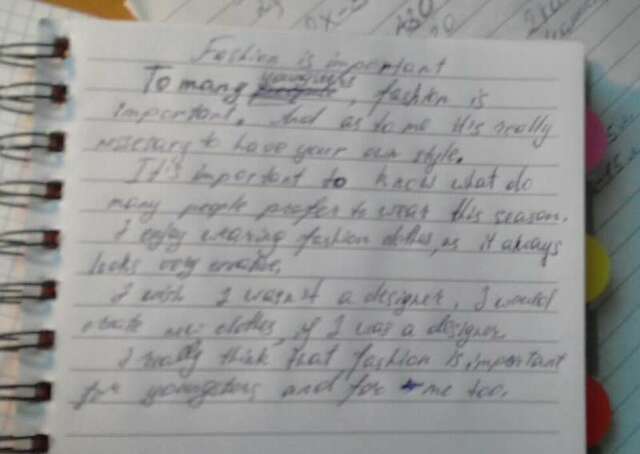 Fashion is important
To many youngsters, fashion is
important. And as to me it's really
necessary to have your own style.
It's important to know what do
many people prefer to wear this season.
I enjoy wearing fashion clothes, as it always
looks very creative.
I wish I wasn't a designer, I would
create new clothes, if I was a designer.
I really think that fashion is important
for youngsters and for me too.